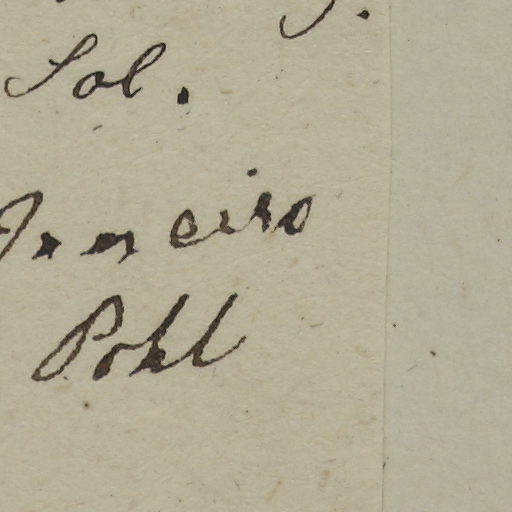 Sol.
Janeiro
Pohl